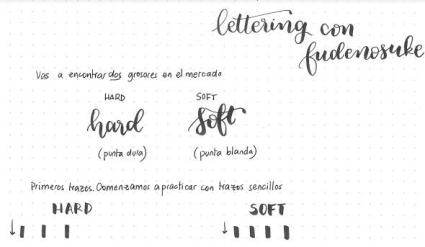 lettering con
fudenosuke
Vas a encontrar dos grosores en el mercado
HARD SOFT
hard soft
(punta dura) (punta blanda)
Primeros trazos. Comenzamos a practicar con trazos sencillos
HARD SOFT